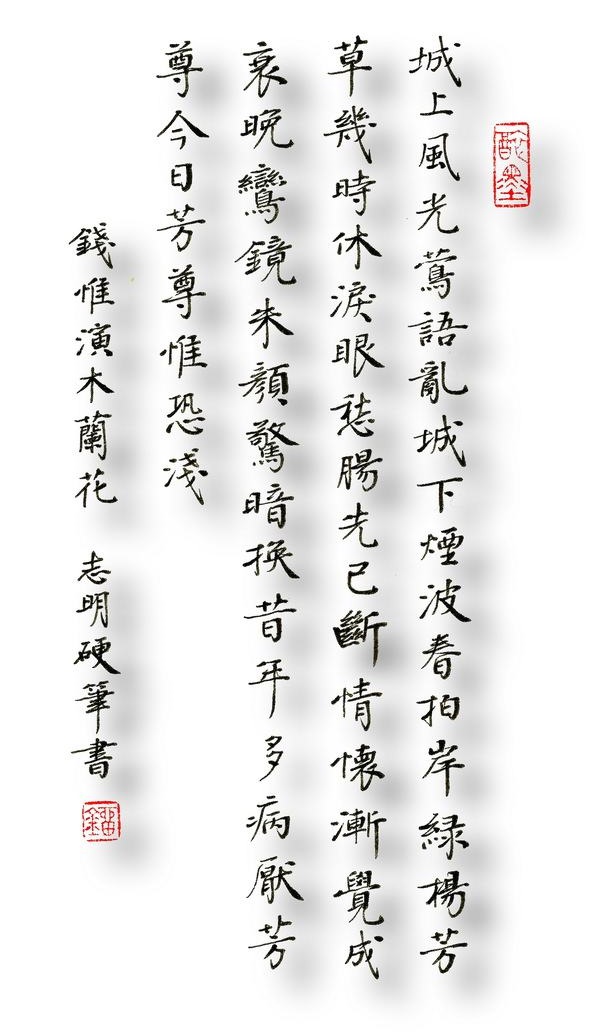 城上風光鶯語亂城下煙波春拍岸綠楊芳
草幾時休淚眼愁腸先已斷情懷漸覺成
衰晚鸞鏡朱顏驚暗換昔年多病厭芳
尊今日芳尊惟恐淺
錢惟演木蘭花 志明硬筆書